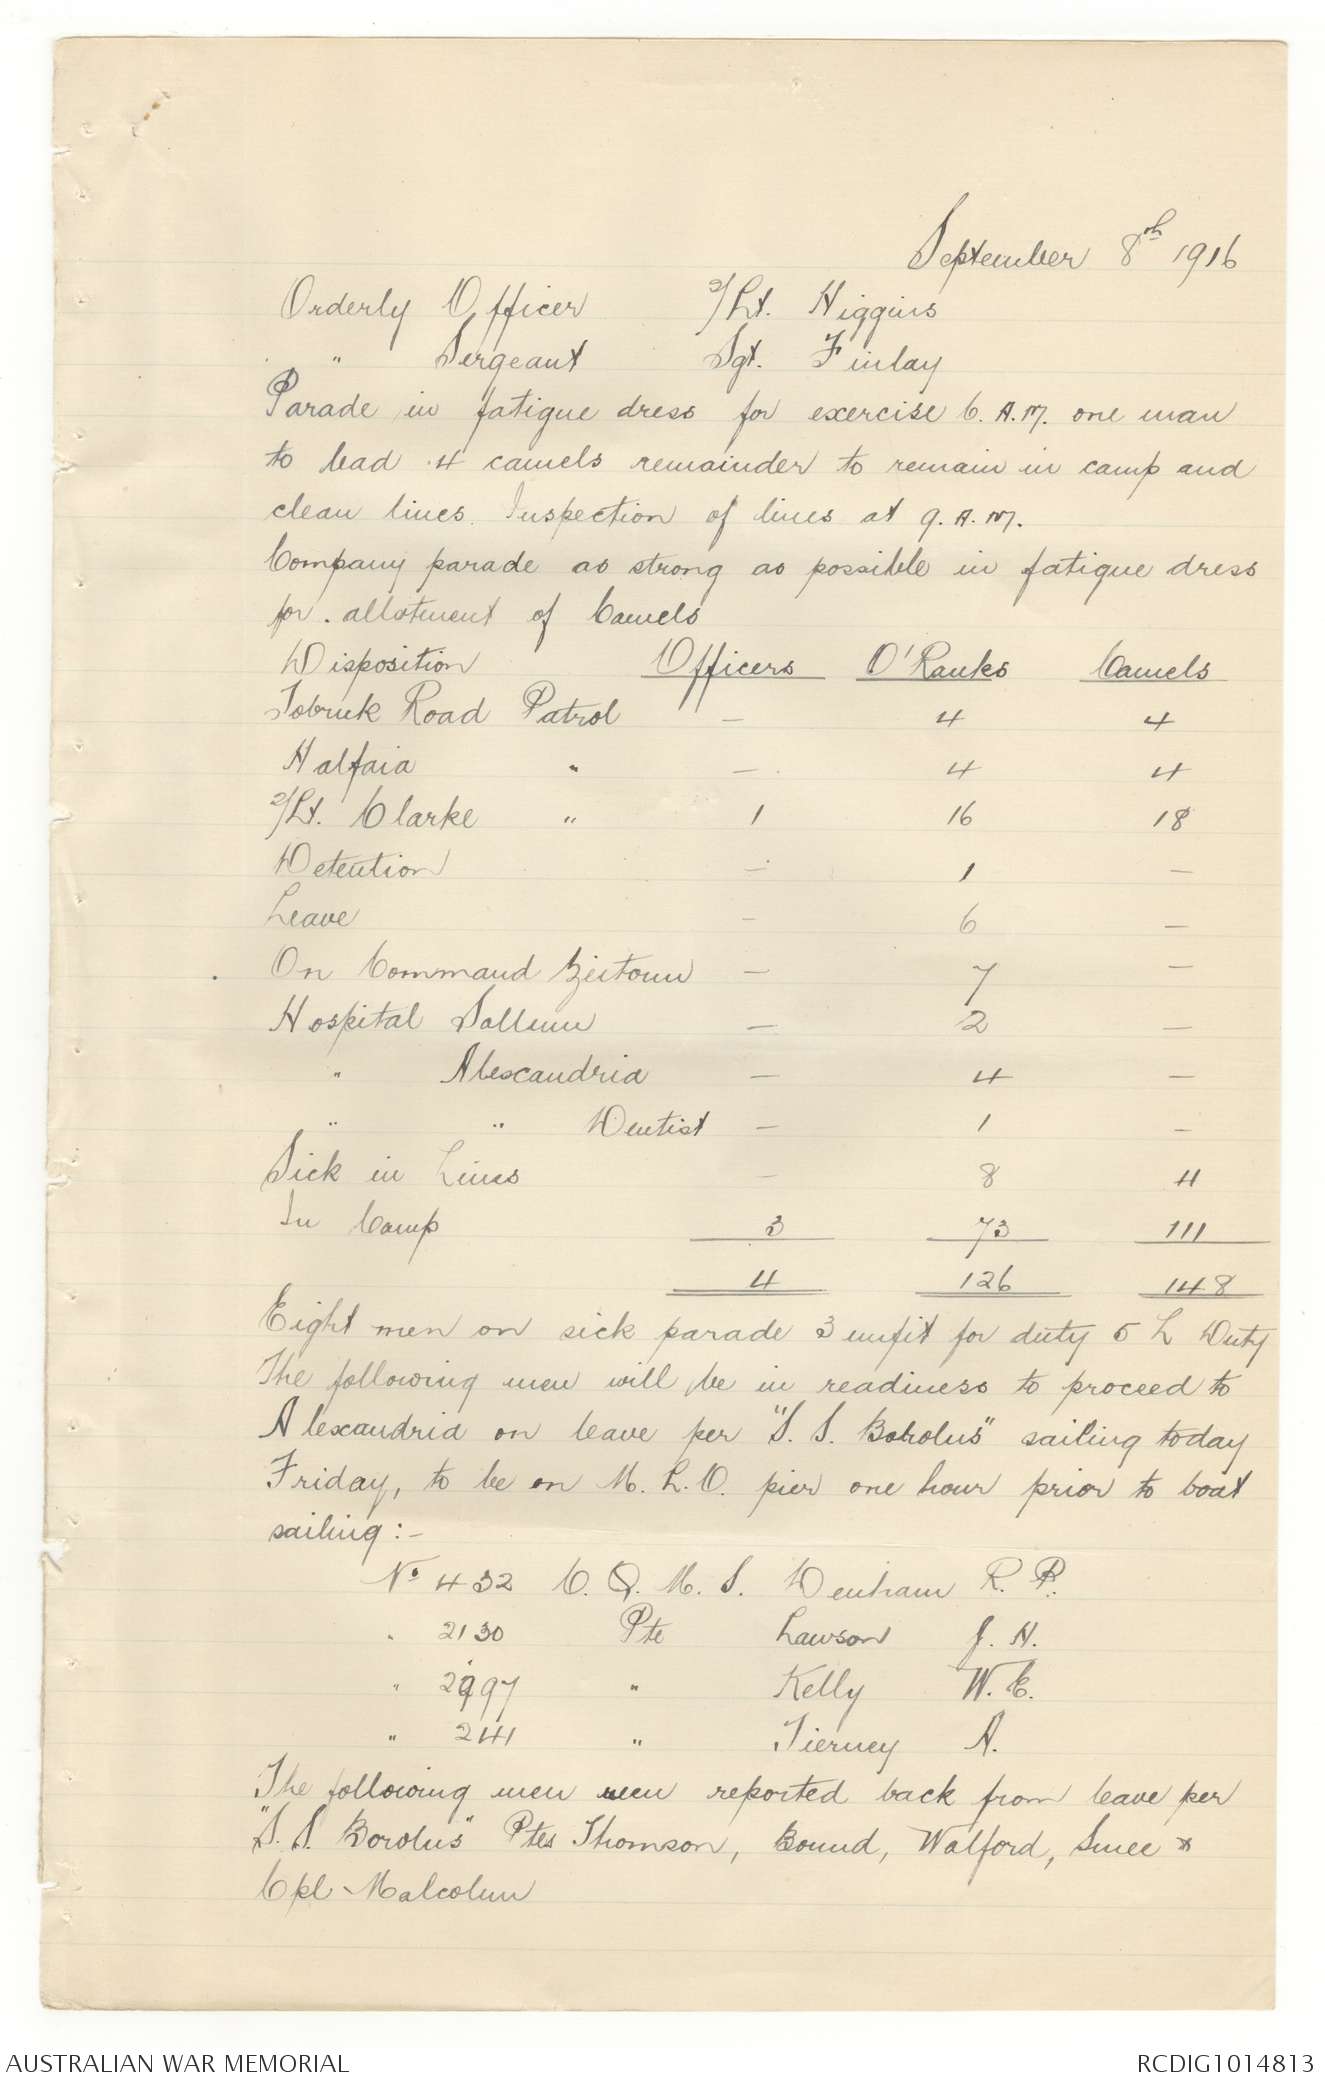 September 8th 1916
Orderly Officer 2/Lt. Higgins
" Sergeant Sgt. Finlay
Parade in fatigue dress for exercise 6. A.M. one man
to lead 4 camels remainder to remain in camp and
clean lines. Inspection of lines at 9. A.M.
Company parade as strong as possible in fatigue dress
for . allotment of Camels
Disposition Officers O'Ranks Camels
Tobruk Road Patrol — 4 4
Halfaia " — 4 4
2/Lt. Clarke " 1 16 18
Detention — 1 —
Leave — 6 —
On Command Zeitoun — 7 —
Hospital Sollum — 2 —
" Alexandria — 4 —
" " Dentist — 1 —
Sick in Lines — 8 11
In Camp 3 73 111
4 126 148
Eight men on sick parade 3 unfit for duty 5 L Duty
The following men will be in readiness to proceed to
Alexandria on leave per "S. S. Borolus" sailing today
Friday, to be on M. L. O. pier one hour prior to boat
sailing:-
No 432 C. Q. M. S. Denham R. P.
" 2130 Pte Lawson J. H.
" 2997 " Kelly W. E.
" 2411 " Tierney A.
The following men men reported back from leave per
"S. S. Borolus" Ptes Thomson, Bound, Walford, Smee &
Cpl Malcolm
AUSTRALIAN WAR MEMORIAL
RCDIG1014813